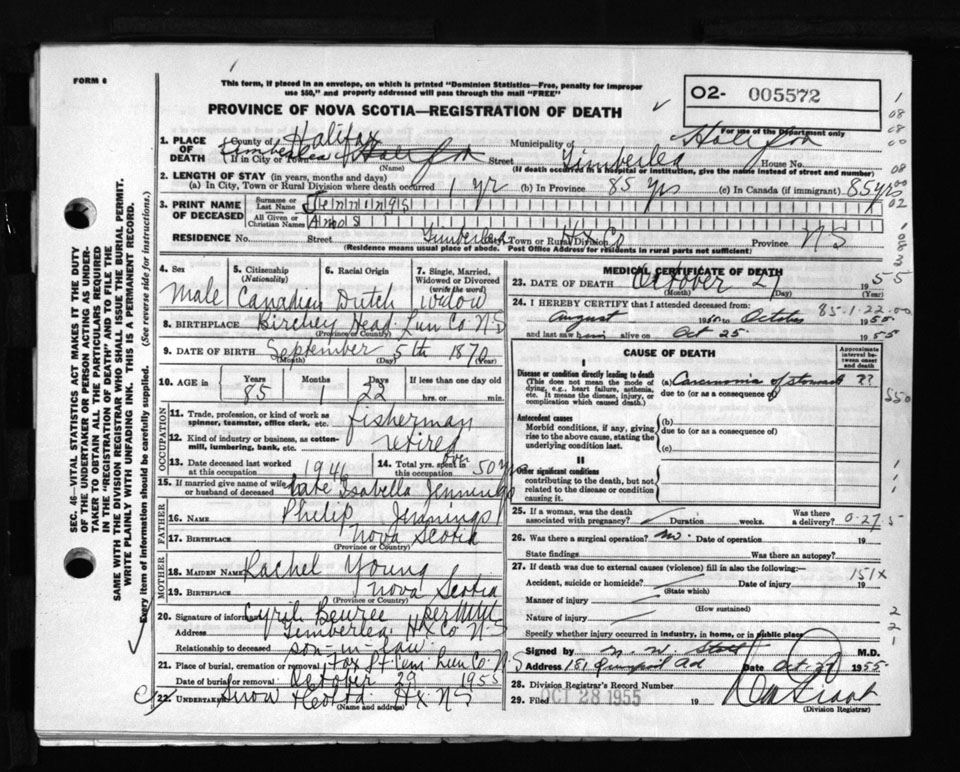 FORM 6
This form, if placed in an envelope, on which is printed "Dominion Statistics—Free, penalty for improper
use $50," and properly addressed will pass through the mail "FREE"
PROVINCE OF NOVA SCOTIA—REGISTRATION OF DEATH
O2- 005572
For use of the Department only
SEC. 46—VITAL STATISTICS ACT MAKES IT THE DUTY
OF THE UNDERTAKER OR PERSON ACTING AS UNDER-
TAKER TO OBTAIN ALL THE PARTICULARS REQUIRED
IN THE "REGISTRATION OF DEATH" AND TO FILE THE
SAME WITH THE DIVISION REGISTRAR WHO SHALL ISSUE THE BURIAL PERMIT.
WRITE PLAINLY WITH UNFADING INK. THIS IS A PERMANENT RECORD.
Every item of information should be carefully supplied. (See reverse side for instructions.)
1. PLACE OF DEATH County of Halifax Municipality of Halifax
If in City or Town Timberlea Halifax (Name) Street Timberlea House No.
(If death occurred in a hospital or institution, give the name instead of street and number)
2. LENGTH OF STAY (in years, months and days)
(a) In City, Town or Rural Division where death occurred 1 yr (b) In Province 85 yrs (c) In Canada (if immigrant) 85 yrs
3. PRINT NAME OF DECEASED Surname or Last Name Jennings
All Given or Christian Names Amos
RESIDENCE No. Street Timberlea City, Town or Rural Division Hx Co Province N S
(Residence means usual place of abode. Post Office Address for residents in rural parts not sufficient)
4. Sex Male
5. Citizenship (Nationality) Canadian
6. Racial Origin Dutch
7. Single, Married, Widowed or Divorced (write the word) widow
8. BIRTHPLACE Birchey Head Lun Co N S
(Province or Country)
9. DATE OF BIRTH September 5th 1870
(Month) (Day) (Year)
10. AGE in Years 85 Months Days 22 If less than one day old hrs. or min.
OCCUPATION
11. Trade, profession, or kind of work as spinner, teamster, office clerk, etc. fisherman
12. Kind of industry or business, as cotton-mill, lumbering, bank, etc. retired
13. Date deceased last worked at this occupation 1946
14. Total yrs. spent in this occupation over 50 yrs
15. If married give name of wife or husband of deceased late Isabella Jennings
FATHER
16. NAME Philip Jennings
17. BIRTHPLACE Nova Scotia
(Province or Country)
MOTHER
18. MAIDEN NAME Rachel Young
19. BIRTHPLACE Nova Scotia
(Province or Country)
20. Signature of informant Cyril per
Address Timberlea Hx Co N S
Relationship to deceased son-in-law
21. Place of burial, cremation or removal Fox Pt Cem Lun Co N S
Date of burial or removal October 29 1955
22. UNDERTAKER Snow Hx N S
(Name and address)
MEDICAL CERTIFICATE OF DEATH
23. DATE OF DEATH October 27 1955
(Month) (Day) (Year)
24. I HEREBY CERTIFY that I attended deceased from: 85-1-22-00
August to October 1955
and last saw him alive on Oct 25 1955
CAUSE OF DEATH
Approximate interval between onset and death
I
Disease or condition directly leading to death
(This does not mean the mode of dying, e.g., heart failure, asthenia, etc. It means the disease, injury, or complication which caused death.)
(a) Carcinoma of stomach ??
due to (or as a consequence of)
Antecedent causes
Morbid conditions, if any, giving rise to the above cause, stating the underlying condition last.
(b)
due to (or as a consequence of)
(c)
II
Other significant conditions
contributing to the death, but not related to the disease or condition causing it.
25. If a woman, was the death associated with pregnancy? Duration weeks. Was there a delivery? 0-27-5
26. Was there a surgical operation? no. Date of operation 19
State findings Was there an autopsy?
27. If death was due to external causes (violence) fill in also the following:—
151X
Accident, suicide or homicide? (State which) Date of injury 19
Manner of injury (How sustained)
Nature of injury
Specify whether injury occurred in industry, in home, or in public place
Signed by M.D.
Address 181 Date Oct 27 1955
28. Division Registrar's Record Number
29. Filed OCT 28 1955 19
(Division Registrar)